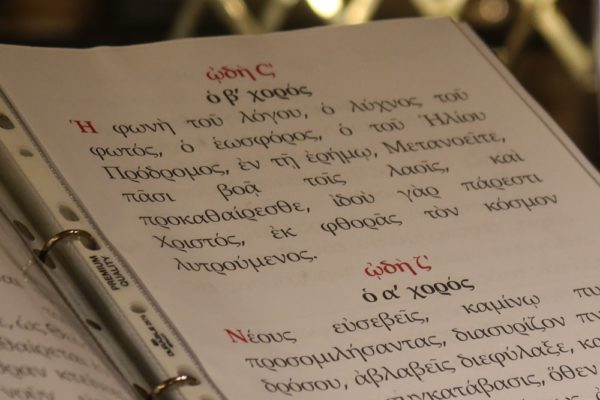 ᾠδὴ Ϛ'
ὁ β' χορός
Ἡ φωνὴ τοῦ λόγου, ὁ λύχνος τοῦ
φωτός, ὁ ἑωσφόρος, ὁ τοῦ Ἡλίου
Πρόδρομος, ἐν τῇ ἐρήμῳ, Μετανοεῖτε,
πᾶσι βοᾷ τοῖς λαοῖς, καὶ
προκαθαίρεσθε, ἰδοὺ γὰρ πάρεστι
Χριστός, ἐκ φθορᾶς τὸν κόσμον
λυτρούμενος.
ᾠδὴ ζ'
ὁ α' χορός
Νέους εὐσεβεῖς, καμίνῳ
προσομιλήσαντας, διασυρίζον
δρόσου, ἀβλαβεῖς διεφύλαξε,
συγκατάβασις, ὅθεν
PREMIUM
QUALITY